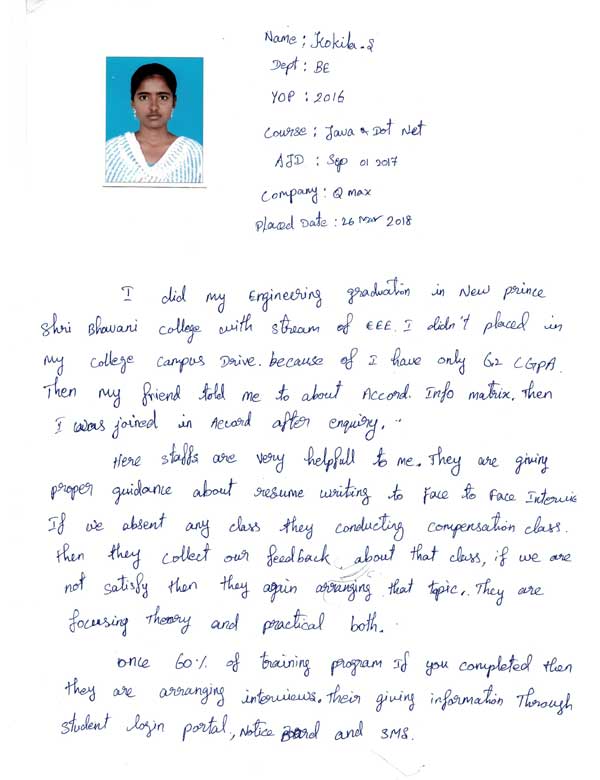 Name : Kokila.S
Dept : BE
YOP : 2016
Course : Java & Dot Net
AJD : Sep 01 2017
Company : Q max
Placed Date : 26 Mar 2018
I did my Engineering graduation in New prince
Shri Bhavani college with stream of EEE. I didn't placed in
my college campus Drive. because of I have only 6.2 CGPA.
Then my friend told me to about Accord. Info matrix. Then
I was joined in Accord after enquiry.
Here staffs are very helpfull to me. They are giving
proper guidance about resume writing to Face to Face Intervie
If we absent any class they conducting compensation class.
then they collect our feedback about that class, if we are
not satisfy then they again arranging that topic. They are
focusing Theory and practical both.
once 60% of training program If you completed then
they are arranging interviews. Their giving information Through
Student login portal, Notice Board and SMS.